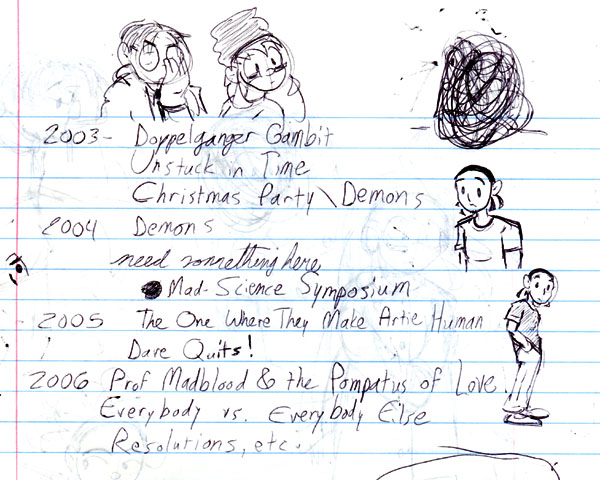 2003- Doppelganger Gambit
Unstuck in Time
Christmas Party \ Demons
2004 Demons
need something here
Mad-Science Symposium
2005 The One Where They Make Artie Human
Dave Quits!
2006 Prof Madblood & the Pompatus of Love
Everybody vs. Everybody Else
Resolutions, etc.